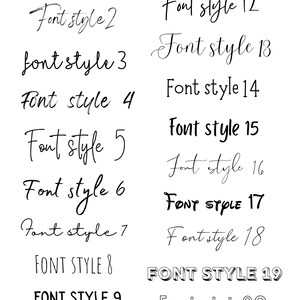 Font style 2
font style 3
Font style 4
Font style 5
Font style 6
Font style 7
FONT STYLE 8
FONT STYLE 9
Font style 12
Font style 13
Font style 14
Font style 15
Font style 16
FONT STYLE 17
Font style 18
FONT STYLE 19